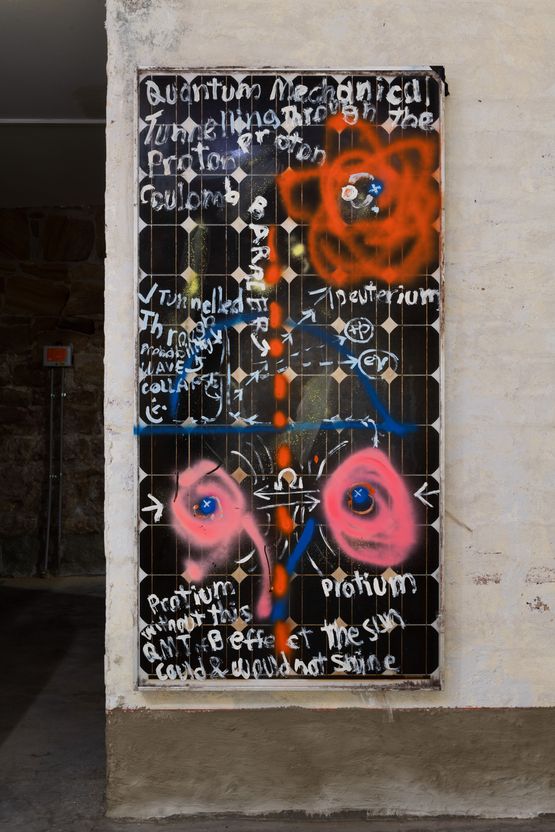 Quantum Mechanical
Tunnelling Through The
Proton Proton
Coulomb
BARRIER
✓ Tunnelled
Through
Probability
WAVE
COLLAPSE
Deuterium
e+
Protium
Protium
without this
Q.M.T. of B effect The sun
could & would not shine